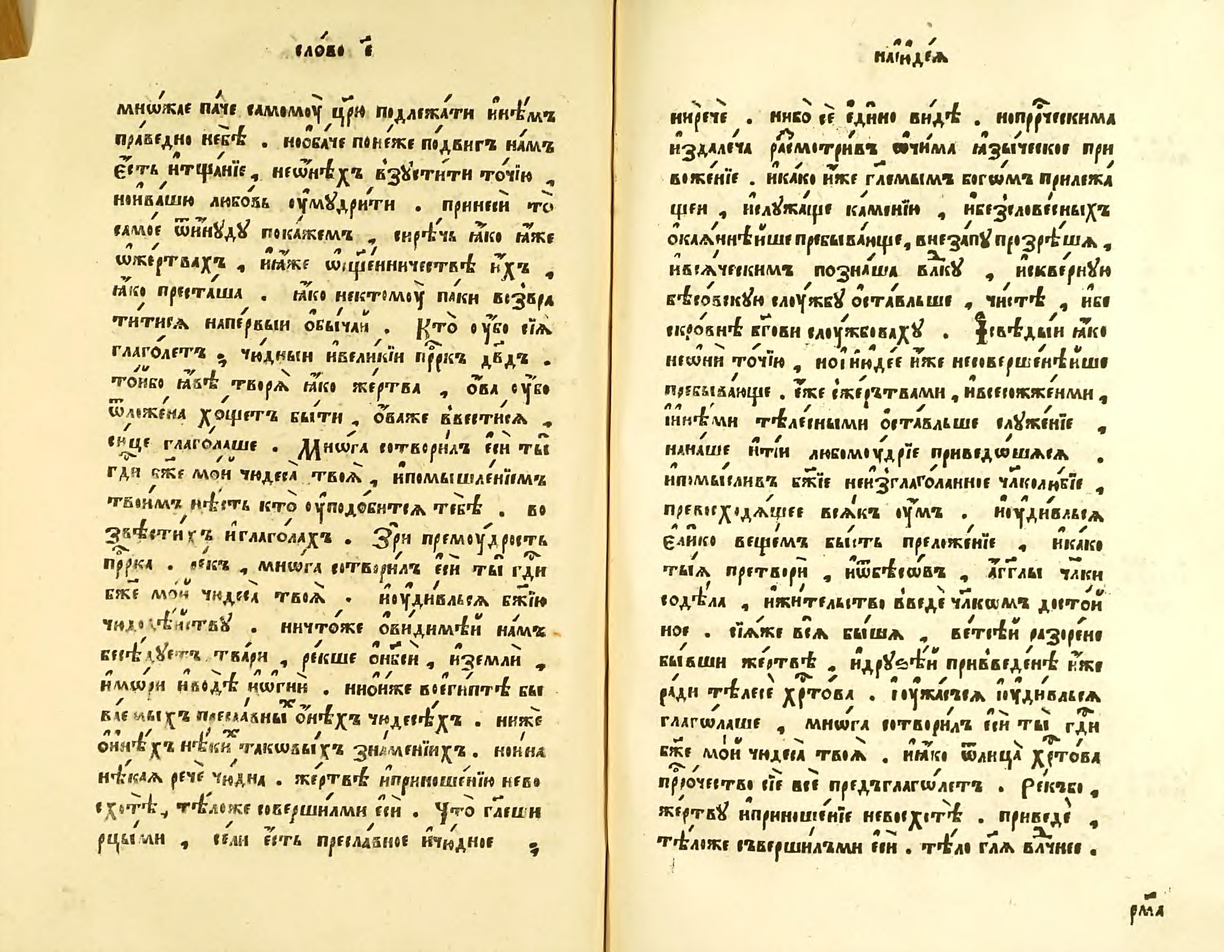 сло́во є҃
мно́жае па́че самомоу̀ цр҃ю подлежа́ти и҆нѣ́мъ
пра́ведно не́бѣ . нооба́че поне́же по́двигъ на́мъ
є҆́сть и҆тща́нїе , неѡ҆нѣ́хъ в̾зꙋсти́ти то́чїю ,
ноива́шю любо́вь оу҆мꙋдри́ти . принеси́ то̀
самое ѿи҆нꙋ́дꙋ пока́жемъ , сирѣ́чь ꙗ҆́ко ꙗ҆́же
ѡ҆же́ртвахъ , иꙗ҆́же ѡ҆сщ҃е́нничествѣ и҆́хъ ,
ꙗ҆́ко преста́ша . ꙗ҆́ко некꙿтомоу̀ па́ки возвра
ти́тисѧ напе́рвыи ѻ҆бы́чаи . Кто̀ оу҆́бо сїѧ̀
глаго́летъ ; чю́дныи ивели́кїи прⷪ҇ркъ дв҃дъ .
то́ибо ꙗ҆́вѣ творѧ̀ ꙗ҆́ко же́ртва , ѻ҆́ва оу҆́бо
ѿложе́на хо́щетъ бы́ти , ѻ҆́важе в̾вести́сѧ ,
си́це глаго́лаше . Мно́га сотвори́лъ є҆сѝ ты̀
гдⷭ҇и бж҃е мо́и чюдеса̀ твоѧ̀ , ипомышле́нїемъ
твои́мъ нѣ́сть кто̀ оу҆подо́битсѧ тебѣ̀ . во
звѣсти́хъ иглаго́лахъ . Зрѝ премоу́дрость
прⷪ҇рка . ре́къ , мно́га сотвори́лъ є҆сѝ ты̀ гдⷭ҇и
бж҃е мо́и чюдеса̀ твоѧ̀ . ноу҆диви́лъсѧ бж҃їю
чюдодѣ́йствꙋ . ничто́же ѻ҆ви́димѣи на́мъ
бесѣ́дꙋетъ тва́ри , ре́кше ѻ҆не́бси , иземлѝ ,
имо́ри иводѣ̀ иѻ҆гнѝ . ниѻ҆и́же воегѵ́птѣ бы
ва́емыхъ пресла́вныⷯ ѻ҆нѣ́хъ чюдесѣ́хъ . нижѐ
ѻ҆инѣ́хъ нѣ́киⷯ тако́выхъ зна́менїихъ . нои́на
нѣ́каѧ речѐ чю́дна . же́ртвѣ иприноше́нїю нево
схотѣ̀ , тѣ́ложе соверши́лꙿми є҆сѝ . Что̀ гле҃ши
рцы́ми , се́ли є҆́сть пресла́вное ичю́дное ;
наїꙋде́ѧ
ниречѐ . ни́бо сѐ є҆ди́но ви́дѣ . нопрⷪ҇рческима
издале́ча расмотри́въ ѻ҆чи́ма ꙗ҆зы́ческое при
воже́нїе . ика́ко и҆́же гле҃мымъ бого́мъ прилежа́
щеи , ислꙋжа́ще ка́менїю , ибезслове́сныхъ
ѻ҆каѧ́ннѣише пребыва́юще , внеза́пꙋ прозрѣ́шѧ ,
ивсѧ́ческимъ позна́ша влⷣкꙋ , искве́рнꙋю
бѣсо́вскꙋю слоу́жбꙋ ѻ҆ста́вльше , чи́стѣ , ибес
скро́внѣ бг҃ови слоу́жбовахꙋ . Исвѣ́дыи ꙗ҆́ко
неѻ҆нѝ то́чїю , ноїꙋдє́е и҆́же несоверше́нѣише
пребыва́юще . є҆́же сже́рътвами , ивсесожже́ними ,
инѣ́ми тѣле́сными ѻ҆ста́вльше слꙋже́нїе ,
нана́ше итѝ любомоу́дрїе приведо́шасѧ .
ипомы́сливъ бж҃їе неизглаго́ланное чл҃колю́бїе ,
превосходѧ́щее всѧ́къ оу҆́мъ . ноу҆диви́лъсѧ
є҆ли́ко ве́щемъ бы́сть преложе́нїе , ика́ко
тыѧ̀ претворѝ , иѿбѣсо́въ , а҆́гг҃лы чл҃ки
содѣ́ла , ижи́тельство введѐ чл҃комъ досто́й
ное . сїѧ́же всѧ̀ бы́шѧ , ве́тсѣи разоре́не
бы́вши же́ртвѣ , идрꙋ́зѣи приведе́нѣ и҆́же
ра́ди тѣ́лесе хрⷭ҇то́ва . соужа́ссѧ иоудиви́лъсѧ
глаго́лаше , мно́га сотвори́лъ є҆сѝ ты̀ гдⷭ҇и
бж҃е мо́и чюдеса̀ твоѧ̀ . иꙗ҆́ко ѿлица̀ хрⷭ҇то́ва
прⷪ҇ро́чество сїѐ всѐ предъглаго́летъ . Ре́къбо ,
же́ртвꙋ иприноше́нїе невосхотѣ̀ . приведѐ ,
тѣ́ложе съверши́лъми є҆сѝ . тѣ́ло глѧ҃ влⷣчнее .
рм҃а